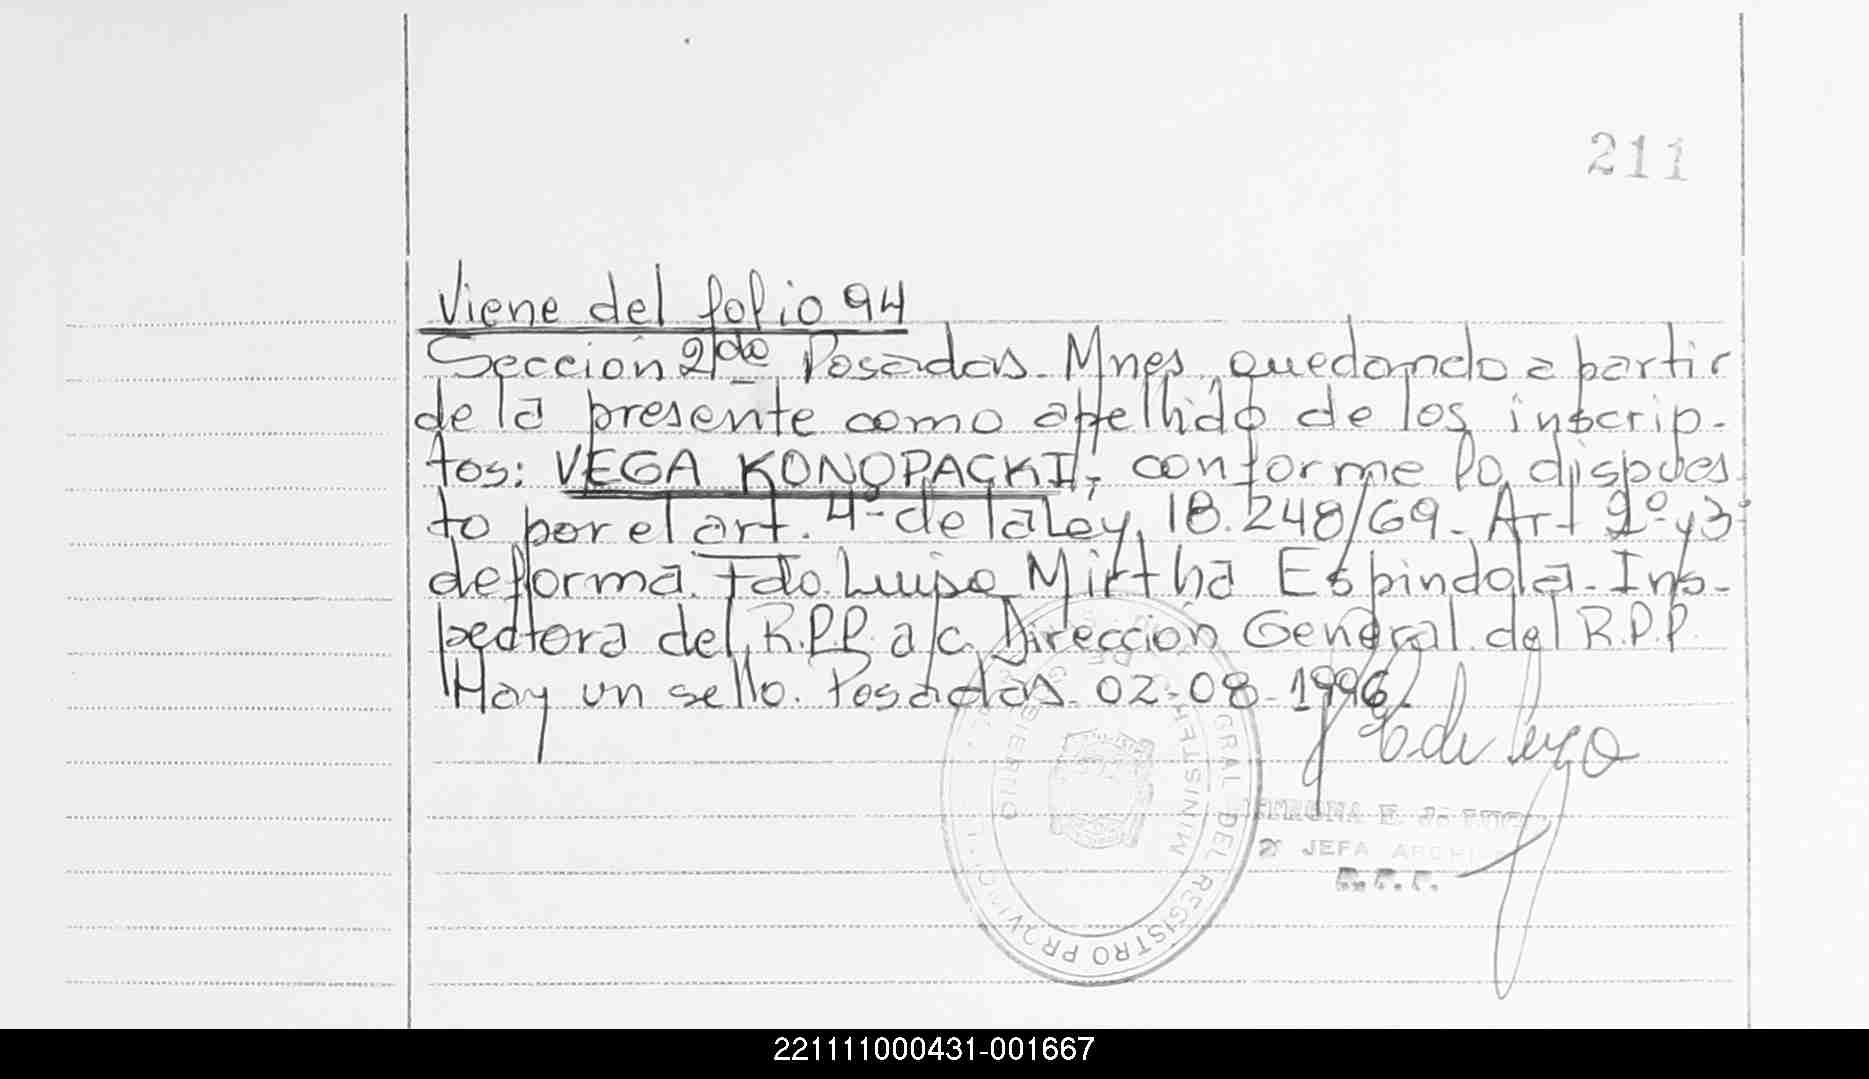 211
Viene del folio 94
Sección 2da Posadas. Mnes, quedando a partir
de la presente como apellido de los inscrip-
tos: VEGA KONOPACKI, conforme lo dispues
to por el art. 4º de la Ley 18.248/69 - Art 2º y 3º
de forma. Fdo. Luisa Mirtha Espindola - Ins-
pectora del R.P.P. a/c Dirección General del R.P.P.
Hay un sello. Posadas - 02-08-1996.
GRAL DEL REGISTRO PROVINCIAL
MINISTER
GOBIERNO
2º JEFA ARCHI
R.P.P.
221111000431-001667